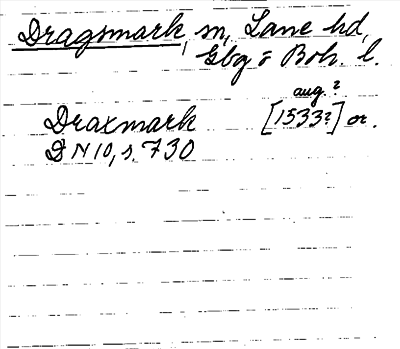 Dragsmark, sn, Lane hd,
Gbg o Boh. l.
aug. ?
Draxmark [1533?] or.
DN 10, s. 730